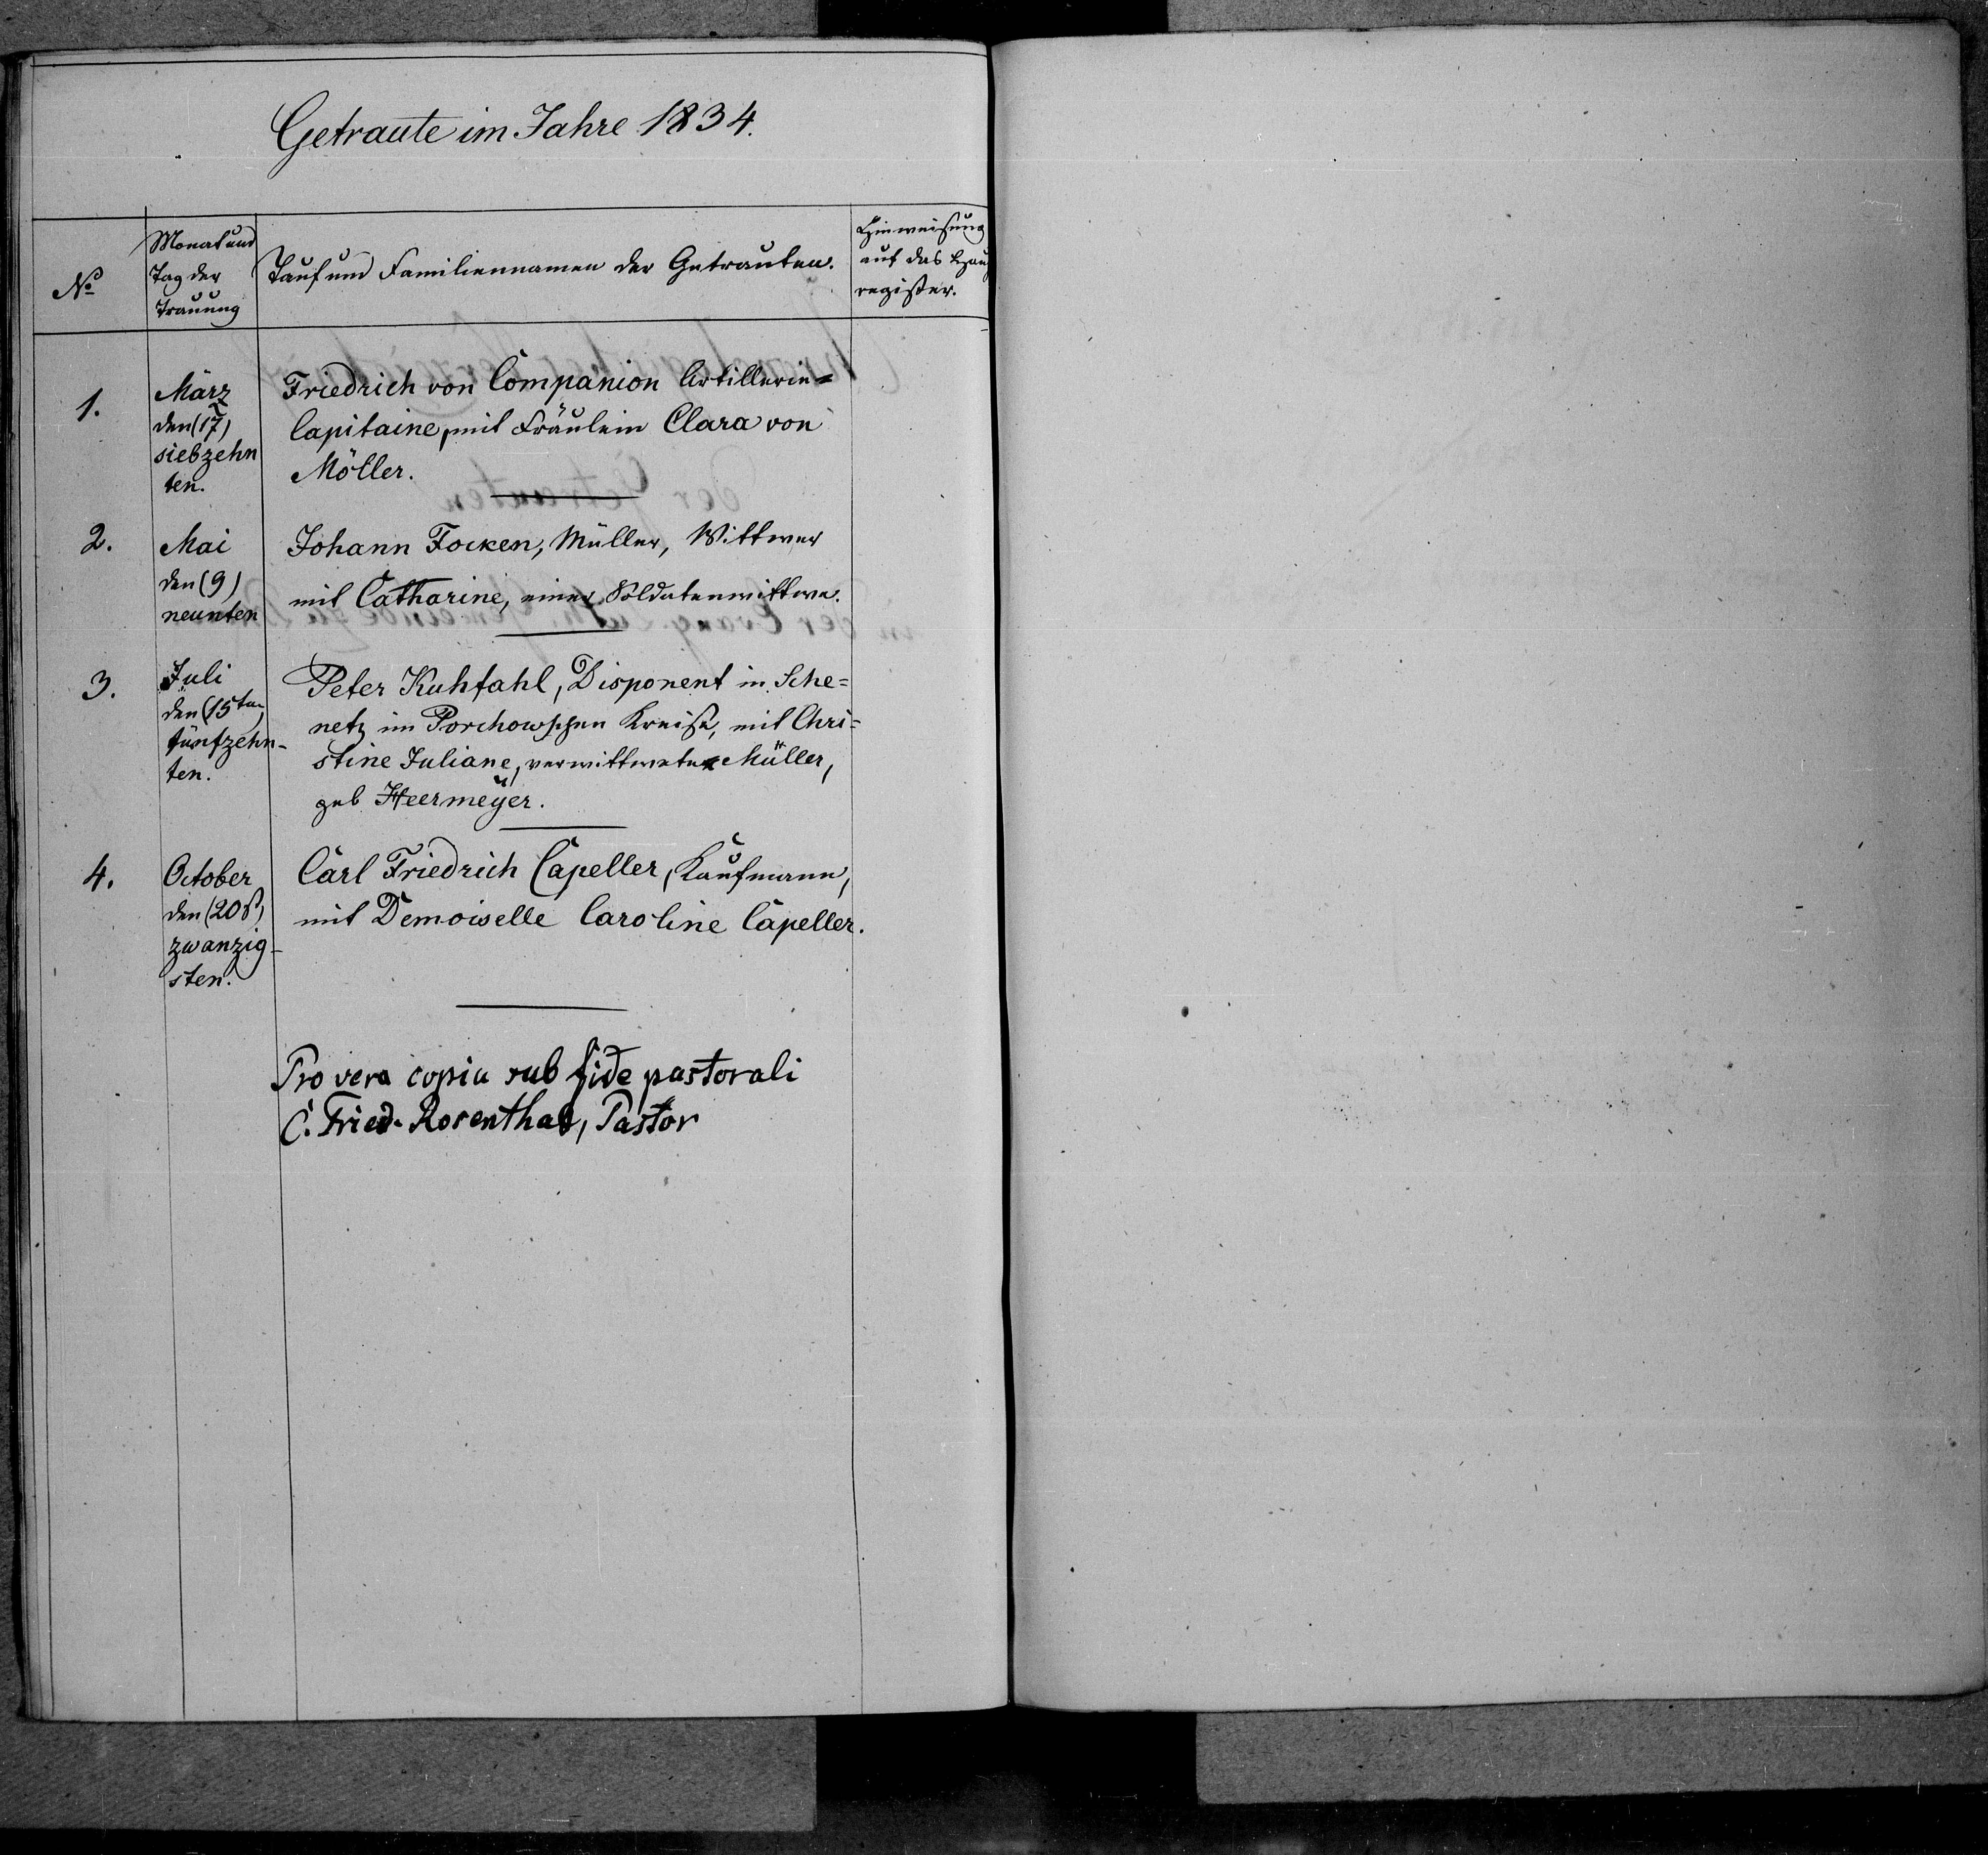 Getraute im Jahre 1834.
No
Monat und
Tag der
Trauung
Tauf und Familiennamen der Getrauten.
Hinweisung
auf das Haupt
register.
1.
März
den (17)
siebzehn
ten.
Friedrich von Companion Artillerie=
Capitaine, mit Fräulein Clara von
Möller.
2.
Mai
den (9)
neunten
Johann Focken, Müller, Wittwer
mit Catharine, einer Soldatenwittwe.
3.
Juli
den (15ten)
fünfzehn-
ten.
Peter Kuhfahl, Disponent in Sche=
netz im Porchowschen Kreise, mit Chri=
stine Juliane, verwittwete Müller,
geb Heermeÿer.
4.
October
den (20st)
zwanzig-
sten.
Carl Friedrich Capeller, Kaufmann,
mit Demoiselle Caroline Capeller.
Pro vera copia sub fide pastorali
C. Fried. Rosenthal, Pastor